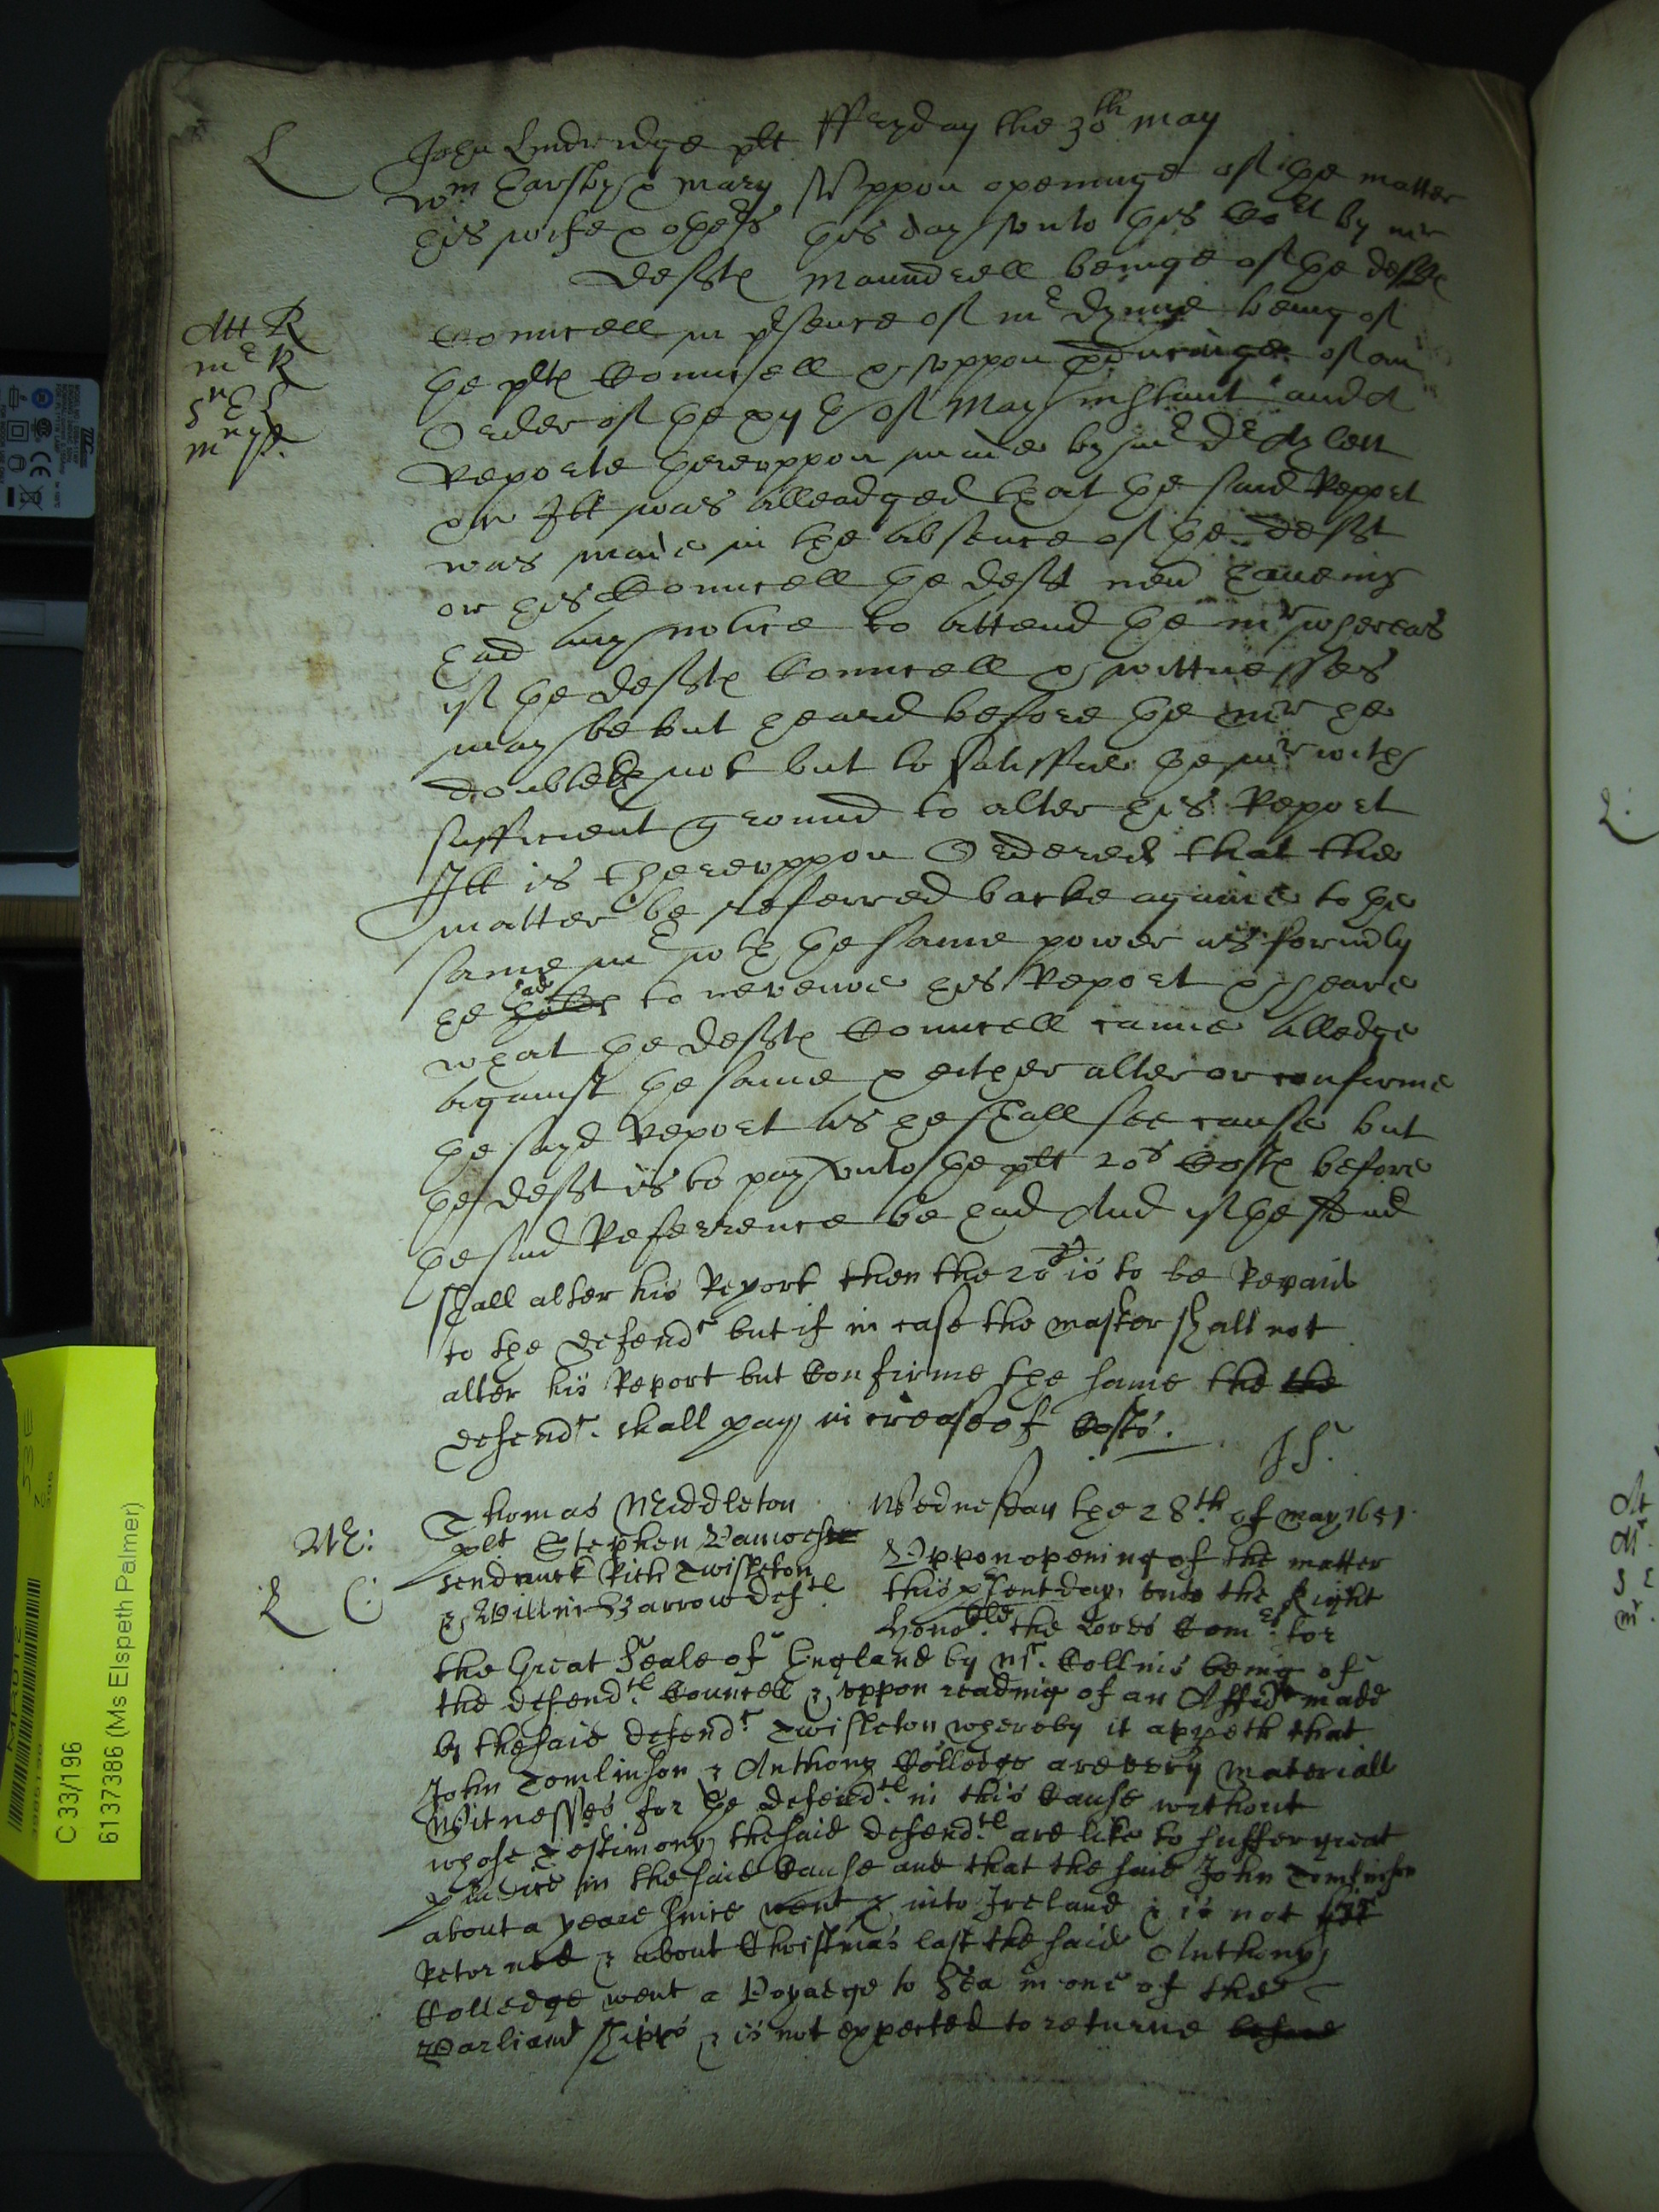 L
John Lindridge plt ffryday the 30th May
Wm Earsby & Mary Vppon openinge of the matter
his wife & others this day vnto this Cort by mr
Defts Maundrell beinge of the defts
Att R
Councell in psence of mr Dynne being of
mr R
the plts Councell & vppon pducinge of an
S E L
Order of the xyth of May instant and a
Reporte therevppon made by mr Dr Aylett
or Itt was alleadged that the said Report
was made in the absence of the deft
or his Councell the deft nev haueing
had any notice to attend the mr whereas
if the defts Councell & wittnesses
may be but heard before the mr he
doubteth not but to satisffie the mr with
sufficient ground to alter his Report
Itt is therevppon Ordered that the
matter be referred backe againe to the
same mr wth the same power as formrly
he had to revewe his Report & heare
what the defts Councell canne alledge
against the same & either alter or confirme
the sayd Report as he shall see cause but
the deft is to pay vnto the plt 20s Costs before
the said Referrence be had And if the
shall alter his Report then the 20s is to be Repaid
to the Defendt but if in case the master shall not
alter his Report but Confirme the same the the
defendt. shall pay increase of Costs.
J S.
Thomas Middleton Wednesday the 28th of may 1651.
plt Stephen Vppon opening of the matter
Rich Twisleton this psent day vnto the Right
& Barrow Defts Honoble. the Lords Comrs. for
R C:
the Great Seale of England by Mr. Collins being of
the defendts. Councell & vppon reading of an Affidt made
by the said defendt Twisleton whereby it appeth that
John Tomlinson & Anthony Colledge are very materiall
Witnesses for the defendts in this Cause without
whose Testimony the said defendts are like to suffer great
piudice in the said Cause and that the said John Tomlinson
about a yeare since went into Ireland & is not yet
Retorned & about Christmas last the said Anthony
Colledge went a Voyadge to Sea in one of the
Parliamt shipps & is not expected to returne before
C 33/196
6137386 (Ms Elspeth Palmer)